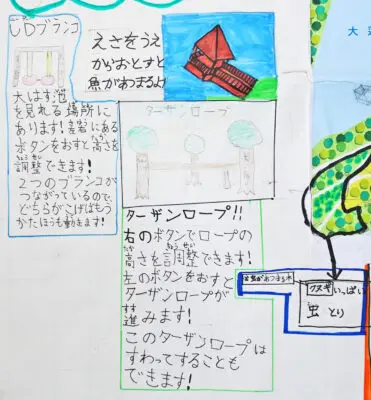 UDブランコ
大はす池
を見れる場所に
あります!差右にある
ボタンをおすと高さを
調整できます!
2つのブランコが
つながっているので、
どちらかこげばもう
かたほうも動きます!
えさをうえ
からおとすと
魚があつまるよ
ターザンロープ
ターザンロープ!!
右のボタンでロープの
高さを調整できます!
左のボタンをおすと
ターザンロープが
進みます!
このターザンロープは
すわってすることも
できます!
虫があつまる木
クヌギいっぱい
虫とり
大